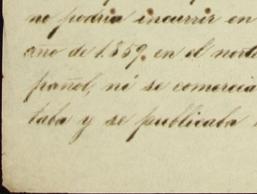 no podria incurrir en
año de 1.859. en el norte
pañol, ni se comercia
taba y se publicaba